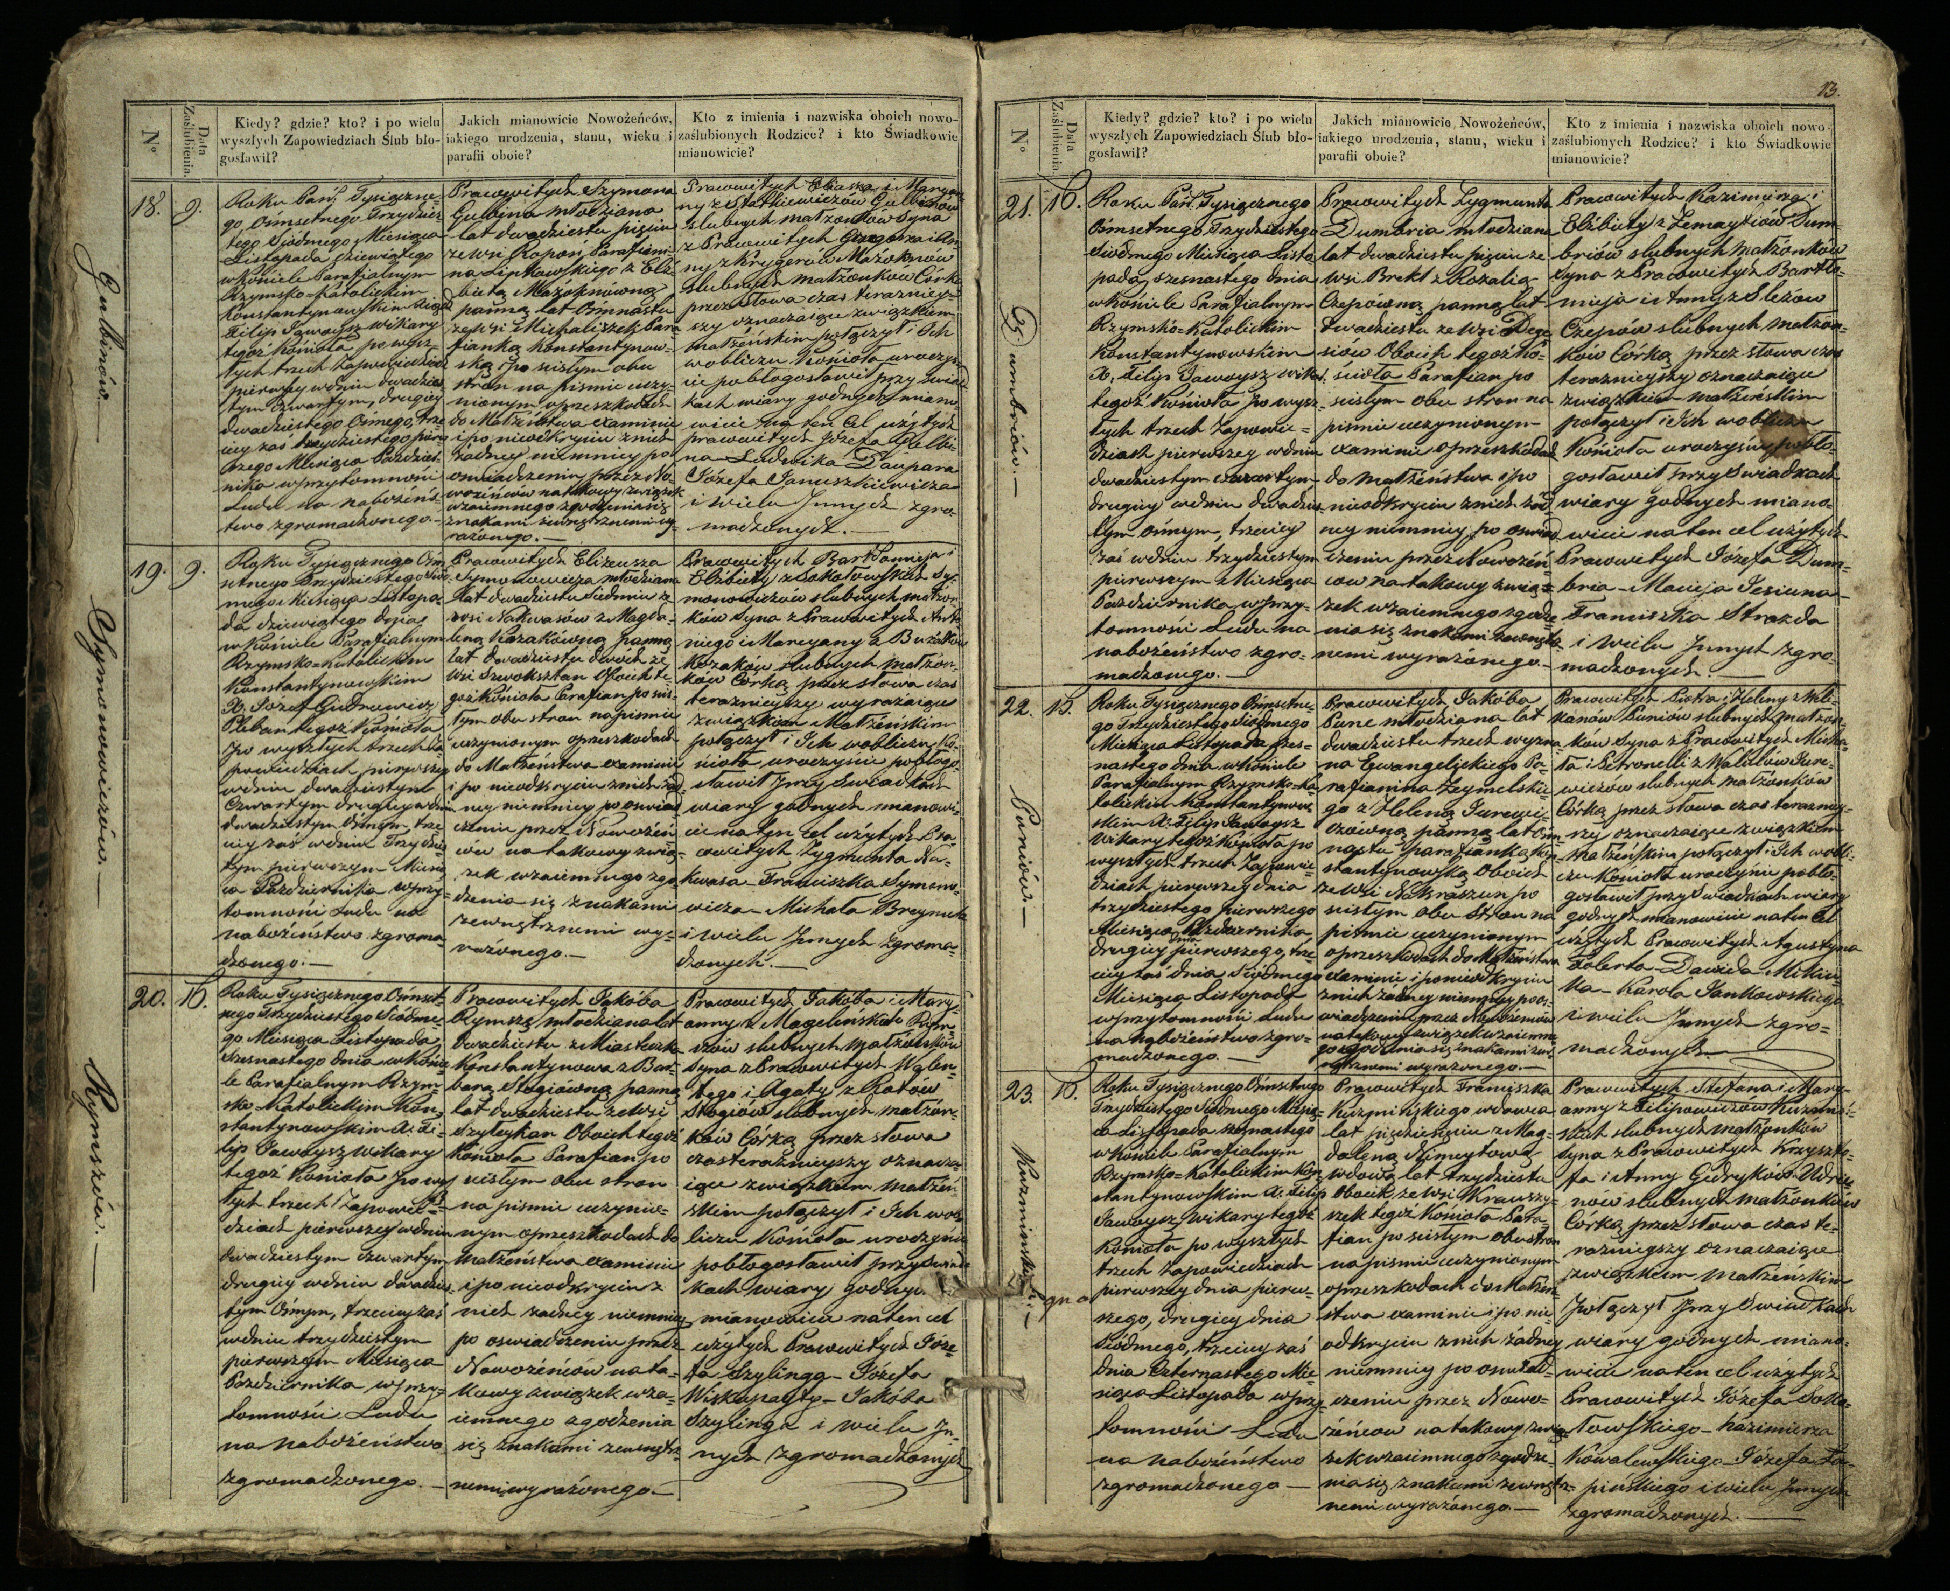 N°
Data Zaślubienia.
Kiedy? gdzie? kto? i po wielu
wyszłych Zapowiedziach Ślub bło-
gosławił?
Jakich mianowicie Nowożeńców,
iakiego urodzenia, stanu, wieku i
parafii oboie?
Kto z imienia i nazwiska oboich nowo-
zaślubionych Rodzice? i kto Świadkowie
mianowicie?
Gulbinów.
18.
9.
Roku Pań: Tysiączne-
go Ośmsetnego Trzydzies
tego Siódmego Miesiąca
Listopada dziewiątego
w Kościele Parafialnym
Rzymsko-Katolickim
Konstantynowskim Xiądz
Filip Jawoysz Wikary
tegoż Kościoła po wysz-
łych trzech Zapowiedziach
pierwszey w dniu dwudzies
tym czwartym, drugiey
dwudziestego Ósmego, trze
ciey zaś trzydziestego pierw
szego Miesiąca Paździer
nika w przytomności
Ludu na nabożeńs-
two zgromadzonego.
Pracowitych Szymona
Gulbina młodziana
lat dwadzieścia pięciu
ze wsi Parafiani-
na Linkowskiego z Elż
bietą Możeykówną
panną lat Ośmnastu
ze wsi Michaliszek Para
fianką Konstantynow-
ską po ścisłym obu
stron na piśmie uczy-
nionym o przeszkodach
do Małżeństwa examinie
i po nieodkryciu z nich
żadney niemniey po
oświadczeniu przez No-
wożeńców na takowy związek
wzaiemnego zgodzenia się
znakami zewnętrznemi wy-
rażonego.
Pracowitych Eliasza i Maryan
ny z Statkiewiczów Gulbinów
ślubnych małżonków Syna
z Pracowitych Grzegorza i An
ny z Krygerów
ślubnych małżonków Córkę
przez słowa czas teraźniey-
szy oznaczaiące związkiem
małżeńskim połączył i Ich
w obliczu Kościoła uroczyś-
cie pobłogosławił przy świad
kach wiary godnych miano
wicie na ten cel użytych
pracowitych Józefa Gulbi-
na Ludwika Daupara
Józefa Januszkiewicza
i wielu Innych zgro
madzonych.
Symonowiczów.
19.
9.
Roku Tysiącznego Ośm
setnego Trzydziestego Siód
mego Miesiąca Listopa-
da dziewiątego dnia
w Kościele Parafialnym
Rzymsko-Katolickim
Konstantynowskim
X. Józef Giedrowicz
Pleban tegoż Kościoła
po wyszłych trzech Za
powiedziach pierwszey
w dniu dwudziestym
Czwartym drugiey w dniu
dwudziestym Ósmym, trze
ciey zaś w dniu Trzydzies
tym pierwszym Miesią
ca Października w przy-
tomności Ludu na
nabożeństwo zgroma
dzonego.
Pracowitych Elizeusza
Symonowicza młodziana
lat dwadzieścia Siedmiu z
wsi Nakwasów z Magda-
leną Kozakówną panną
lat dwadzieścia dwóch ze
wsi Szwoksztan Oboich te-
goż Kościoła Parafian po ścis-
łym obu stron na piśmie
uczynionym o przeszkodach
do Małżeństwa examinie
i po nieodkryciu z nich żad
ney niemniey po oświad
czeniu przez Nowożeń
ców na takowy związ-
zek wzaiemnego zgo
dzenia się znakami
zewnętrznemi wy-
rażonego.
Pracowitych Bartłomieja i
Elżbiety z Sokołowskich Sy-
monowiczów ślubnych małżon
ków Syna z Pracowitych Anto
niego i Maryany z
Kozaków ślubnych małżon-
ków Córką, przez słowa czas
teraźnieyszy wyrażaiące
związkiem Małżeńskim
połączył i Ich w obliczu Ko-
ścioła uroczyście pobłogo-
sławił przy świadkach
wiary godnych mianowi-
cie na ten cel użytych Pra
cowitych Zygmunta Na-
kwasa Franciszka Symono
wicza Michała
i wielu Innych zgroma-
dzonych.
Rymszów.
20.
16.
Roku Tysiącznego Ośmset-
nego Trzydziestego Siódme-
go Miesiąca Listopada
Szesnastego dnia w Kościo
le Parafialnym Rzym-
sko-Katolickim Kon-
stantynowskim X. Fi-
lip Jawoysz Wikary
tegoż Kościoła po wy
szłych trzech Zapowie-
dziach pierwszey w dniu
dwudziestym czwartym
drugiey w dniu dwudzies
tym Ósmym, trzeciey zaś
w dniu trzydziestym
pierwszym Miesiąca
Października w przy-
tomności Ludu
na nabożeństwo
zgromadzonego.
Pracowitych Jakóba
Rymszę młodziana lat
dwadzieścia z Miasteczka
Konstantynowa z Bar-
barą Stogiówną panną
lat dwadzieścia ze wsi
Szyłeykan Oboich tegoż
Kościoła Parafian po
ścisłym obu stron
na piśmie uczynio-
nym o przeszkodach do
małżeństwa examinie
i po nieodkryciu z
nich żadney niemniey
po oświadczeniu przez
Nowożeńców na ta-
kowy związek wza-
iemnego zgodzenia
się znakami zewnętrz-
nemi wyrażonego.
Pracowitych Jakóba i Mary-
anny z Magelińskich Rym-
szów ślubnych Małżonków
Syna z Pracowitych Walen-
tego i Agaty z Ratów
Stogiów ślubnych małżon-
ków Córką przez słowa
czas teraźnieyszy oznacza-
iące związkiem małżeń
skim połączył i Ich w ob-
liczu Kościoła uroczyście
pobłogosławił przy Świad
kach wiary godnych
mianowicie na ten cel
użytych Pracowitych Józe-
fa Szylinga Józefa
Jakóba
Szylinga i wielu In-
nych zgromadzonych
13.
N°
Data Zaślubienia.
Kiedy? gdzie? kto? i po wielu
wyszłych Zapowiedziach Ślub bło-
gosławił?
Jakich mianowicie Nowożeńców,
iakiego urodzenia, stanu, wieku i
parafii oboie?
Kto z imienia i nazwiska oboich nowo-
zaślubionych Rodzice? i kto Świadkowie
mianowicie?
Dumbriów.
21.
16.
Roku Pań: Tysiącznego
Ośmsetnego Trzydziestego
Siódmego Miesiąca Listo
pada, szesnastego dnia
w Kościele Parafialnym
Rzymsko-Katolickim
Konstantynowskim
X. Filip Jawoysz Wikary
tegoż Kościoła po wysz-
łych trzech Zapowie-
dziach pierwszey w dniu
dwudziestym czwartym
drugiey w dniu dwudzies
tym ósmym, trzeciey
zaś w dniu trzydziestym
pierwszym Miesiąca
Października w przy-
tomności Ludu na
nabożeństwo zgro-
madzonego.
Pracowitych Zygmunta
Dumbria młodziana
lat dwadzieścia pięciu ze
wsi Brekt z Rozalią
Czepówną panną lat
dwadzieścia ze wsi
Oboich tegoż Ko-
ścioła Parafian po
ścisłym obu stron na
piśmie uczynionym
examinie o przeszkodach
do małżeństwa i po
nieodkryciu z nich żad
ney niemniey, po oświad
czeniu przez Nowożeń
ców na takowy związ-
zek wzaiemnego zgodze
nia się znakami zewnętrz-
nemi wyrażonego.
Pracowitych Kazimierza i
Elżbiety z Żemaytiów Dum
briów ślubnych małżonków
Syna z Pracowitych Bartło-
mieja i Anny z Sleżów
Czepów ślubnych małżon-
ków Córką przez słowa czas
teraźnieyszy oznaczaiące
związkiem małżeńskim
połączył i Ich w obliczu
Kościoła uroczyście pobło-
gosławił przy świadkach
wiary godnych miano-
wicie na ten cel użytych
Pracowitych Józefa Dum-
bria Macieja Jesiuna
Franciszka Strazda
i wielu Innych zgro-
madzonych.
Puniów.
22.
15.
Roku Tysiącznego Ośmsetne-
go Trzydziestego Siódmego
Miesiąca Listopada szes-
nastego dnia w Kościele
Parafialnym Rzymsko-Ka
tolickim Konstantynow
skim X. Filip Jawoysz
Wikary tegoż Kościoła po
wyszłych trzech Zapowie-
dziach pierwszey dnia
trzydziestego pierwszego
Miesiąca Października
drugiey dnia pierwszego, trze-
ciey zaś dnia Siódmego
Miesiąca Listopada
w przytomności Ludu
na nabożeństwo zgro-
madzonego.
Pracowitych Jakóba
Punie młodziana lat
dwadzieścia trzech wyzna
nia Ewangelickiego Pa-
rafianina Żeymelskie-
go z Heleną Jurewi-
czówną panną lat Ośm
nastu parafianką Kon
stantynowską Oboich
ze wsi Nakraszun po
ścisłym obu stron na
piśmie uczynionym
o przeszkodach do Małżeństwa
examinie i po nieodkryciu
z nich żadney niemniey po oś-
wiadczeniu przez Nowożeńców
na takowy związek wzaiemne
go zgodzenia się znakami zew-
nętrznemi wyrażonego.
Pracowitych Piotra i Heleny z Mili-
kanów Puniów ślubnych małżon-
ków Syna z Pracowitych Micha-
ła i Petronelli z Walulów Jure-
wiczów ślubnych małżonków
Córką przez słowa czas teraźniey-
szy oznaczaiące związkiem
Małżeńskim połączył i Ich w obli-
czu Kościoła uroczyście pobło-
gosławił przy Świadkach wiary
godnych mianowicie na ten Cel
użytych Pracowitych Agustyna
Folerta Dawida
Karola Jankowskiego
i wielu Innych zgro-
madzonych
Kuzmińskich.
23.
15.
Roku Tysiącznego Ośmsetnego
Trzydziestego Siódmego Miesią-
ca Listopada szesnastego
w Kościele Parafialnym
Rzymsko-Katolickim Kon
stantynowskim X. Filip
Jawoysz Wikary tegoż
Kościoła po wyszłych
trzech Zapowiedziach
pierwszey dnia pierw-
szego, drugiey dnia
Siódmego, trzeciey zaś
dnia Czternastego Mie-
siąca Listopada w przy-
tomności Ludu
na nabożeństwo
zgromadzonego
Pracowitych Franciszka
Kuzmińskiego wdowca
lat pięćdziesiąt z Mag-
daleną
wdową lat trzydzieści
Oboich, ze wsi Krauszy-
szek tegoż Kościoła Para-
fian po ścisłym obu stron
na piśmie uczynionym
o przeszkodach do Małżeń
stwa examinie i po nie-
odkryciu z nich żadney
niemniey po oświad-
czeniu przez Nowo-
żeńców na takowy związ
zek wzaiemnego zgodze-
nia się znakami zewnętrz-
nemi wyrażonego.
Pracowitych Stefana i Mary-
anny z Filipowiczów Kuzmiń-
skich ślubnych małżonków
Syna z Pracowitych Krzyszto-
fa i Anny
ślubnych małżonków
Córką, przez słowa czas te-
raźnieyszy oznaczaiące
związkiem Małżeńskim
Połączył przy Świadkach
wiary godnych miano-
wicie na ten cel użytych
Pracowitych Józefa Soko-
łowskiego Kazimierza
Kowalewskiego Józefa Ło-
pińskiego i wielu Innych
zgromadzonych.